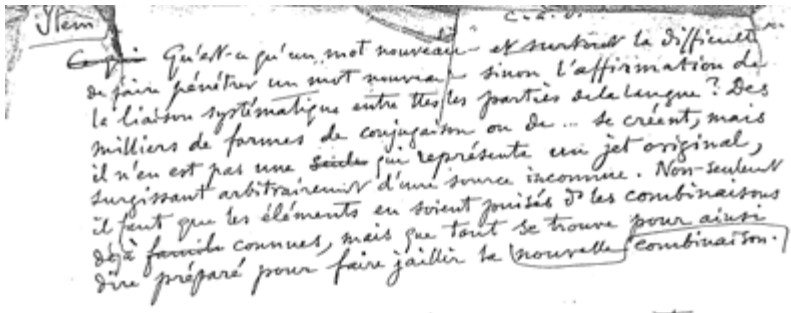 Item
Qu'est-ce qu'un mot nouveau et surtout la difficulté
de faire pénétrer un mot nouveau sinon l'affirmation de
la liaison systématique entre ttes les parties de la langue ? Des
milliers de formes de conjugaison ou de ... se créent, mais
il n'en est pas une seule qui représente un jet original,
surgissant arbitrairement d'une source inconnue. Non-seulement
il faut que les éléments en soient puisés ds les combinaisons
déjà connues, mais que tout se trouve pour ainsi
dire préparé pour faire jaillir la nouvelle combinaison.